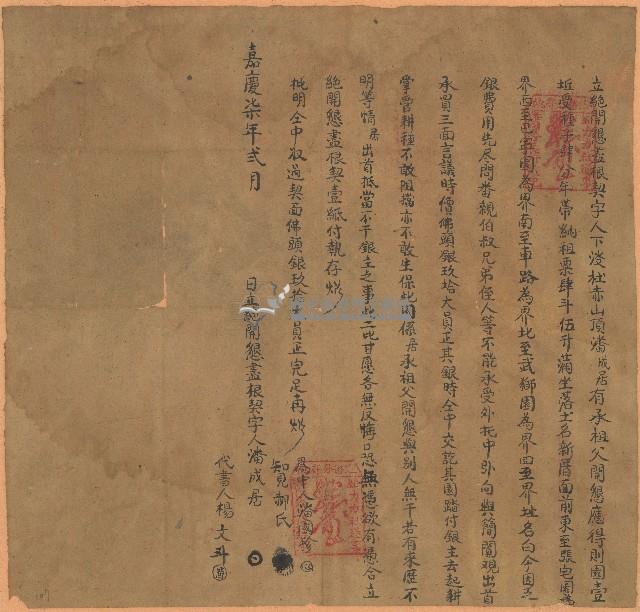 立絕開懇盡根契字人下淡社赤山頂潘成居有承祖父開懇應得則園壹
坵受種子肆分年帶納租粟肆斗伍升滿坐落土名新厝面前東至張宅園為
界西至屯宅園為界南至車路為界北至武鄉園為界四至界址名白今因乏
銀費用先尽問番親伯叔兄弟侄人等不能承受外托中引向與簡闊觀出首
承買三面言議時價佛頭銀玖拾大員正其銀時仝中交訖其園踏付銀主去起耕
掌管耕種不敢阻擋亦不敢生保此園係居承祖父開懇與別人無干若有來歷不
明等情居出首抵當不干銀主之事此二比甘愿各無反悔口恐無憑欲有憑合立
絕開懇盡根契壹紙付執存炤
批明仝中收過契面佛頭銀玖拾大員正完足再炤
為中人潘
知見郝氏
嘉慶柒年弍月 日立絕開懇盡根契字人潘成居
代書人楊文斗